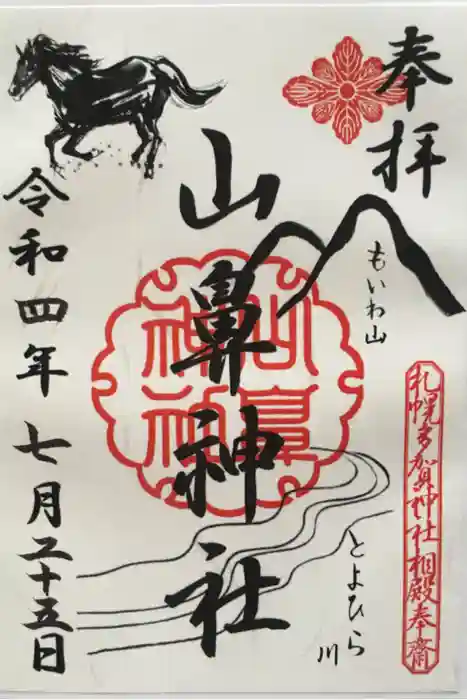 奉拝
もいわ山
札幌多賀神社相殿奉齋
山鼻神社
山鼻神社
とよひら川
令和四年七月二十五日